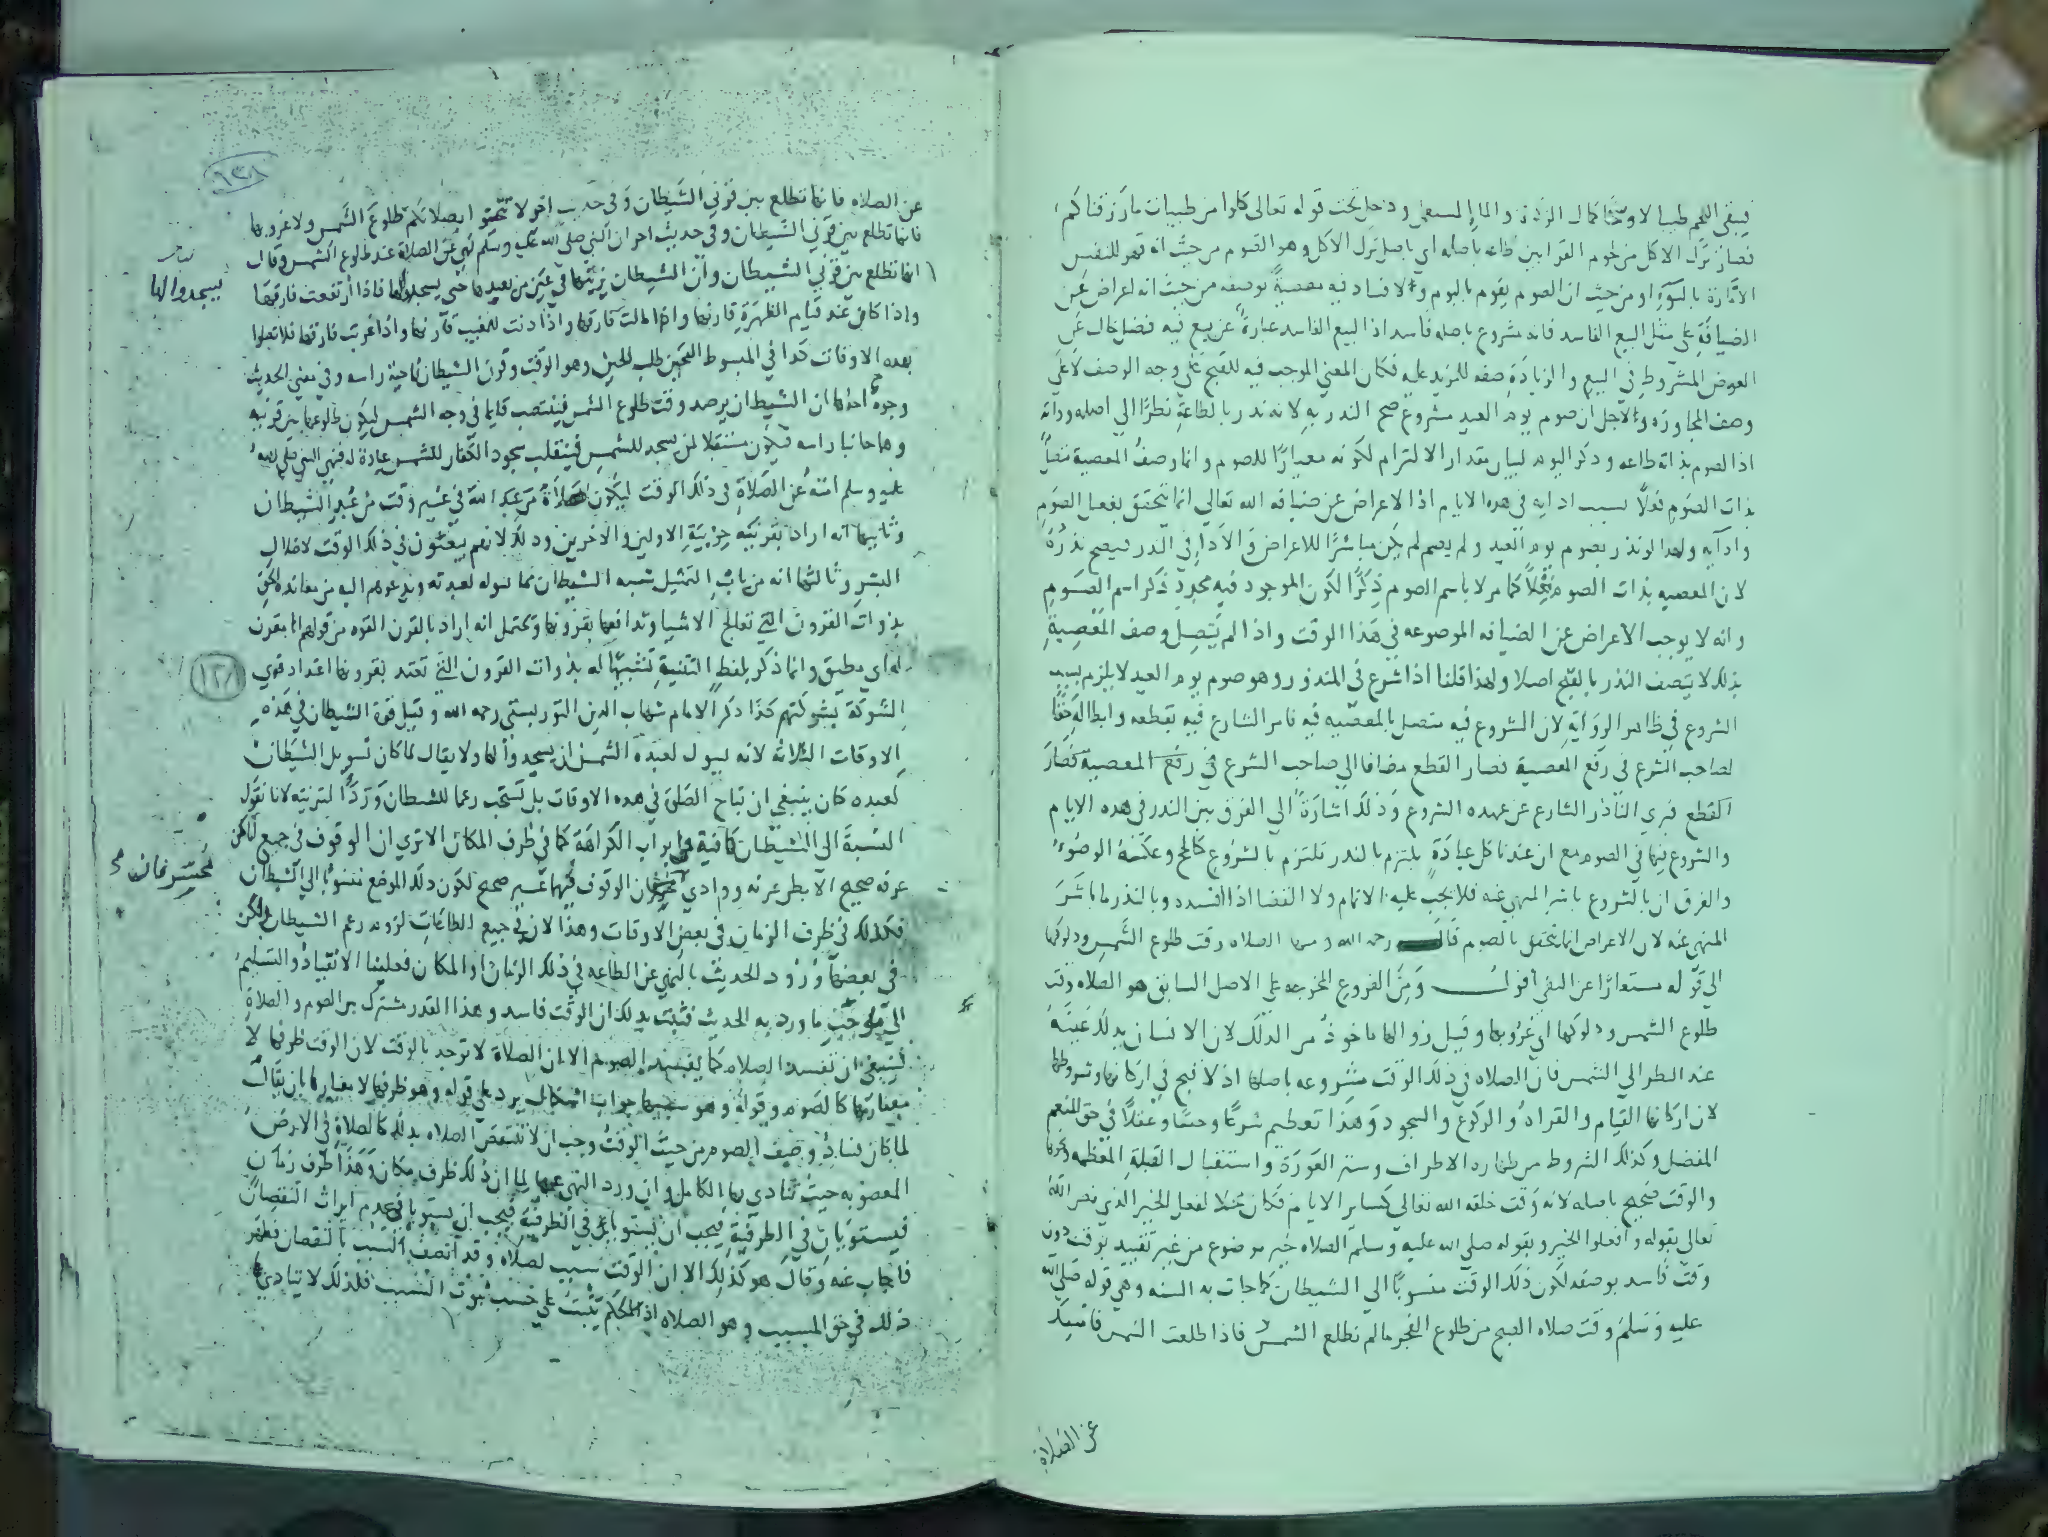 فيبقى اللحم طيبا لا وسخا كمال الزكاة والماء المستعمل ودخل تحت قوله تعالى كلوا من طيبات ما رزقناكم
فصار ترك الاكل من لحوم القرابين طاعه باصله اي باصل ترك الاكل وهو الصوم من حيث انه قهر للنفس
الامارة بالسوء او من حيث ان الصوم يقوم باليوم ولا فساد فيه معصية بوصفه من حيث انه اعراض عن
الضيافة على مثل البيع الفاسد فانه مشروع باصله فاسد اذ البيع الفاسد عبارة عن بيع فيه فضل خال عن
العوض المشروط في البيع والزيادة صفه للمزيد عليه فكان المعنى الموجب فيه للقبح على وجه الوصف لا على
وصف المجاورة ولاجل ان صوم يوم العيد مشروع صح النذر به لانه نذر بالطاعة نظرا الى اصله وذاته
اذ الصوم بذاته طاعه وذكر اليوم لبيان مقدار الالتزام لكونه معيارا للصوم وانما وصف المعصية متصل
بذات الصوم فعلا بسبب ادايه في هذه الايام اذ الاعراض عن ضيافه الله تعالى انما يتحقق بفعل الصوم
وادآيه ولهذا لو نذر بصوم يوم العيد ولم يصم لم يكن مباشرا للاعراض في الاداء في النذر فيصح نذره
لان المعصيه بذات الصوم فعلا كما مر لا باسم الصوم ذكرا لكون الموجود فيه مجرد ذكر اسم الصوم
وانه لا يوجب الاعراض عن الضيافه الموضوعه في هذا الوقت واذا لم يتصل وصف المعصية
بذلك لا يتصف النذر بالقبح اصلا ولهذا قلنا اذا شرع في المنذور وهو صوم يوم العيد لا يلزم بسبب
الشروع في ظاهر الرواية لان الشروع فيه متصل بالمعصيه فيه فامر الشارع فيه بقطعه وابطاله حقا
لصاحب الشرع في رفع المعصية فصار القطع مضافا الى صاحب الشرع في رفع المعصية فصار
القطع فبري الناذر الشارع عن عهده الشروع وذلك اشارة الى الفرق بين النذر في هذه الايام
والشروع فيها في الصوم مع ان عندنا كل عبادة يلتزم بالنذر تلتزم بالشروع كالحج وعكسه الوضوء
والفرق ان بالشروع باشر المنهي عنه فلا يجب عليه الاتمام ولا القضا اذا افسده وبالنذر ما باشر
المنهي عنه لان الاعراض انما يتحقق بالصوم قال رحمه الله ومنها الصلاه وقت طلوع الشمس ودلوكها
الى قوله مستعارا عن النفي اقول ومن الفروع المخرجه على الاصل السابق هو الصلاه وقت
طلوع الشمس ودلوكها اي غروبها وقيل زوالها ماخوذ من الدلك لان الانسان يدلك عينه
عند النظر الى الشمس فان الصلاه في ذلك الوقت مشروعه باصلها اذ لا قبح في اركانها وشروطها
لان اركانها القيام والقراه والركوع والسجود وهذا تعظيم شرعا وحسا وعقلا في حق المنعم
المفضل وكذلك الشروط من طهاره الاطراف وستر العورة واستقبال القبلة المعظمه ونحوها
والوقت صحيح باصله لانه وقت خلقه الله تعالى كساير الايام فكان محلا لفعل الخير الذي نص الله
تعالى بقوله وافعلوا الخير وبقوله صلى الله عليه وسلم الصلاه خير موضوع من غير تقييد بوقت دون
وقت فاسد بوصفه لكون ذلك الوقت منسوبا الى الشيطان كما جات به السنه وهي قوله صلى الله
عليه وسلم وقت صلاه الصبح من طلوع الفجر ما لم تطلع الشمس فاذا طلعت الشمس فامسك
عن الصلاة
٦٣٨
عن الصلاه فانها تطلع بين قرني الشيطان وفي حديث اخر لا تتحروا بصلاتكم طلوع الشمس ولا غروبها
فانها تطلع بين قرني الشيطان وفي حديث اخر ان النبي صلى الله عليه وسلم نهى عن الصلاة عند طلوع الشمس وقال
انها تطلع بين قرني الشيطان وان الشيطان يزينها في عين من يعبدها حتى يسجد لها فاذا ارتفعت فارقها
ليسجدوا لها
واذا كان عند قيام الظهيرة قارنها واذا مالت فارقها واذا دنت للمغيب قارنها واذا غربت فارقها فلا تصلوا
بهذه الاوقات كذا في المبسوط التحين طلب الحين وهو الوقت وقرن الشيطان ناحية راسه وفي معنى الحديث
وجوه احدها ان الشيطان يرصد وقت طلوع الشمس فينتصب قايما في وجه الشمس ليكون طلوعها بين قرنيه
وهما جانبا راسه فيكون مستقبلا لمن يسجد للشمس فينقلب سجود الكفار للشمس عبادة له فنهى النبي صلى الله
عليه وسلم امته عن الصلاة في ذلك الوقت ليكون صلاة من عبد الله في غير وقت من عبد الشيطان
وثانيها انه اراد بقرنيه حزبية الاولين والاخرين وذلك لانهم يبعثون في ذلك الوقت لاضلال
البشر وثالثها انه من باب التمثيل شبه الشيطان فيما يسوله لعبدته ويدعوهم اليه من معانده الحق
بذوات القرون التي تعالج الاشيا وتدافعها بقرونها ويحتمل انه اراد بالقرن القوه من قولهم انا مقرن
له اي مطيق وانما ذكر بلفظ التثنية تشبيها له بذوات القرون التي تعتد بقرونها اعتداد قوي
١٢٨
الشوكة بشوكتهم كذا ذكر الامام شهاب الدين التوربستي رحمه الله وقيل قوة الشيطان في هذه
الاوقات الثلاثه لانه يسول لعبدة الشمس ان يسجدوا لها ولا يقال لما كان تسويل الشيطان
لعبده كان ينبغي ان تباح الصلوة في هذه الاوقات بل تستحب رغما للشيطان وردا لتزيينه لانا نقول
النسبة الى الشيطان كافية في ايراث الكراهة كما في ظرف المكان الا ترى ان الوقوف في جميع اماكن
عرفه صحيح الا بطن عرنه ووادي محسر فان الوقوف فيهما غير صحيح لكون ذلك الموضع منسوبا الى الشيطان
محسر فان
فكذلك في ظرف الزمان في بعض الاوقات وهذا لان في جميع الطاعات لزوم رغم الشيطان ولكن
في بعضها ورود الحديث بالنهي عن الطاعه في ذلك الزمان او المكان فعلينا الانقياد والتسليم
الى موجب ما ورد به الحديث فثبت بذلك ان الوقت فاسد وهذا القدر مشترك بين الصوم والصلاة
فينبغي ان تفسد الصلاه كما يفسد الصوم الا ان الصلاة لا توجد بالوقت لان الوقت ظرفها لا
معيارها كالصوم وقوله وهو سببها جواب اشكال يرد على قوله وهو ظرفها لا معيارها بان يقال
لما كان فساد وصف الصوم من حيث الوقت وجب ان لا تنتقص الصلاه بذلك كالصلاة في الارض
المغصوبه حيث تتادى بها الكامل وان ورد النهي عنها لما ان ذلك ظرف مكان وهذا ظرف زمان
فيستويان في الظرفية فيجب ان يستويا في عدم ايراث النقصان
فاجاب عنه وقال هو كذلك الا ان الوقت سبب لصلاه وقد اتصف السبب بالنقصان فظهر
ذلك في حق المسبب وهو الصلاه اذ الحكم يثبت على حسب ثبوت السبب فلذلك لا يتادى بها